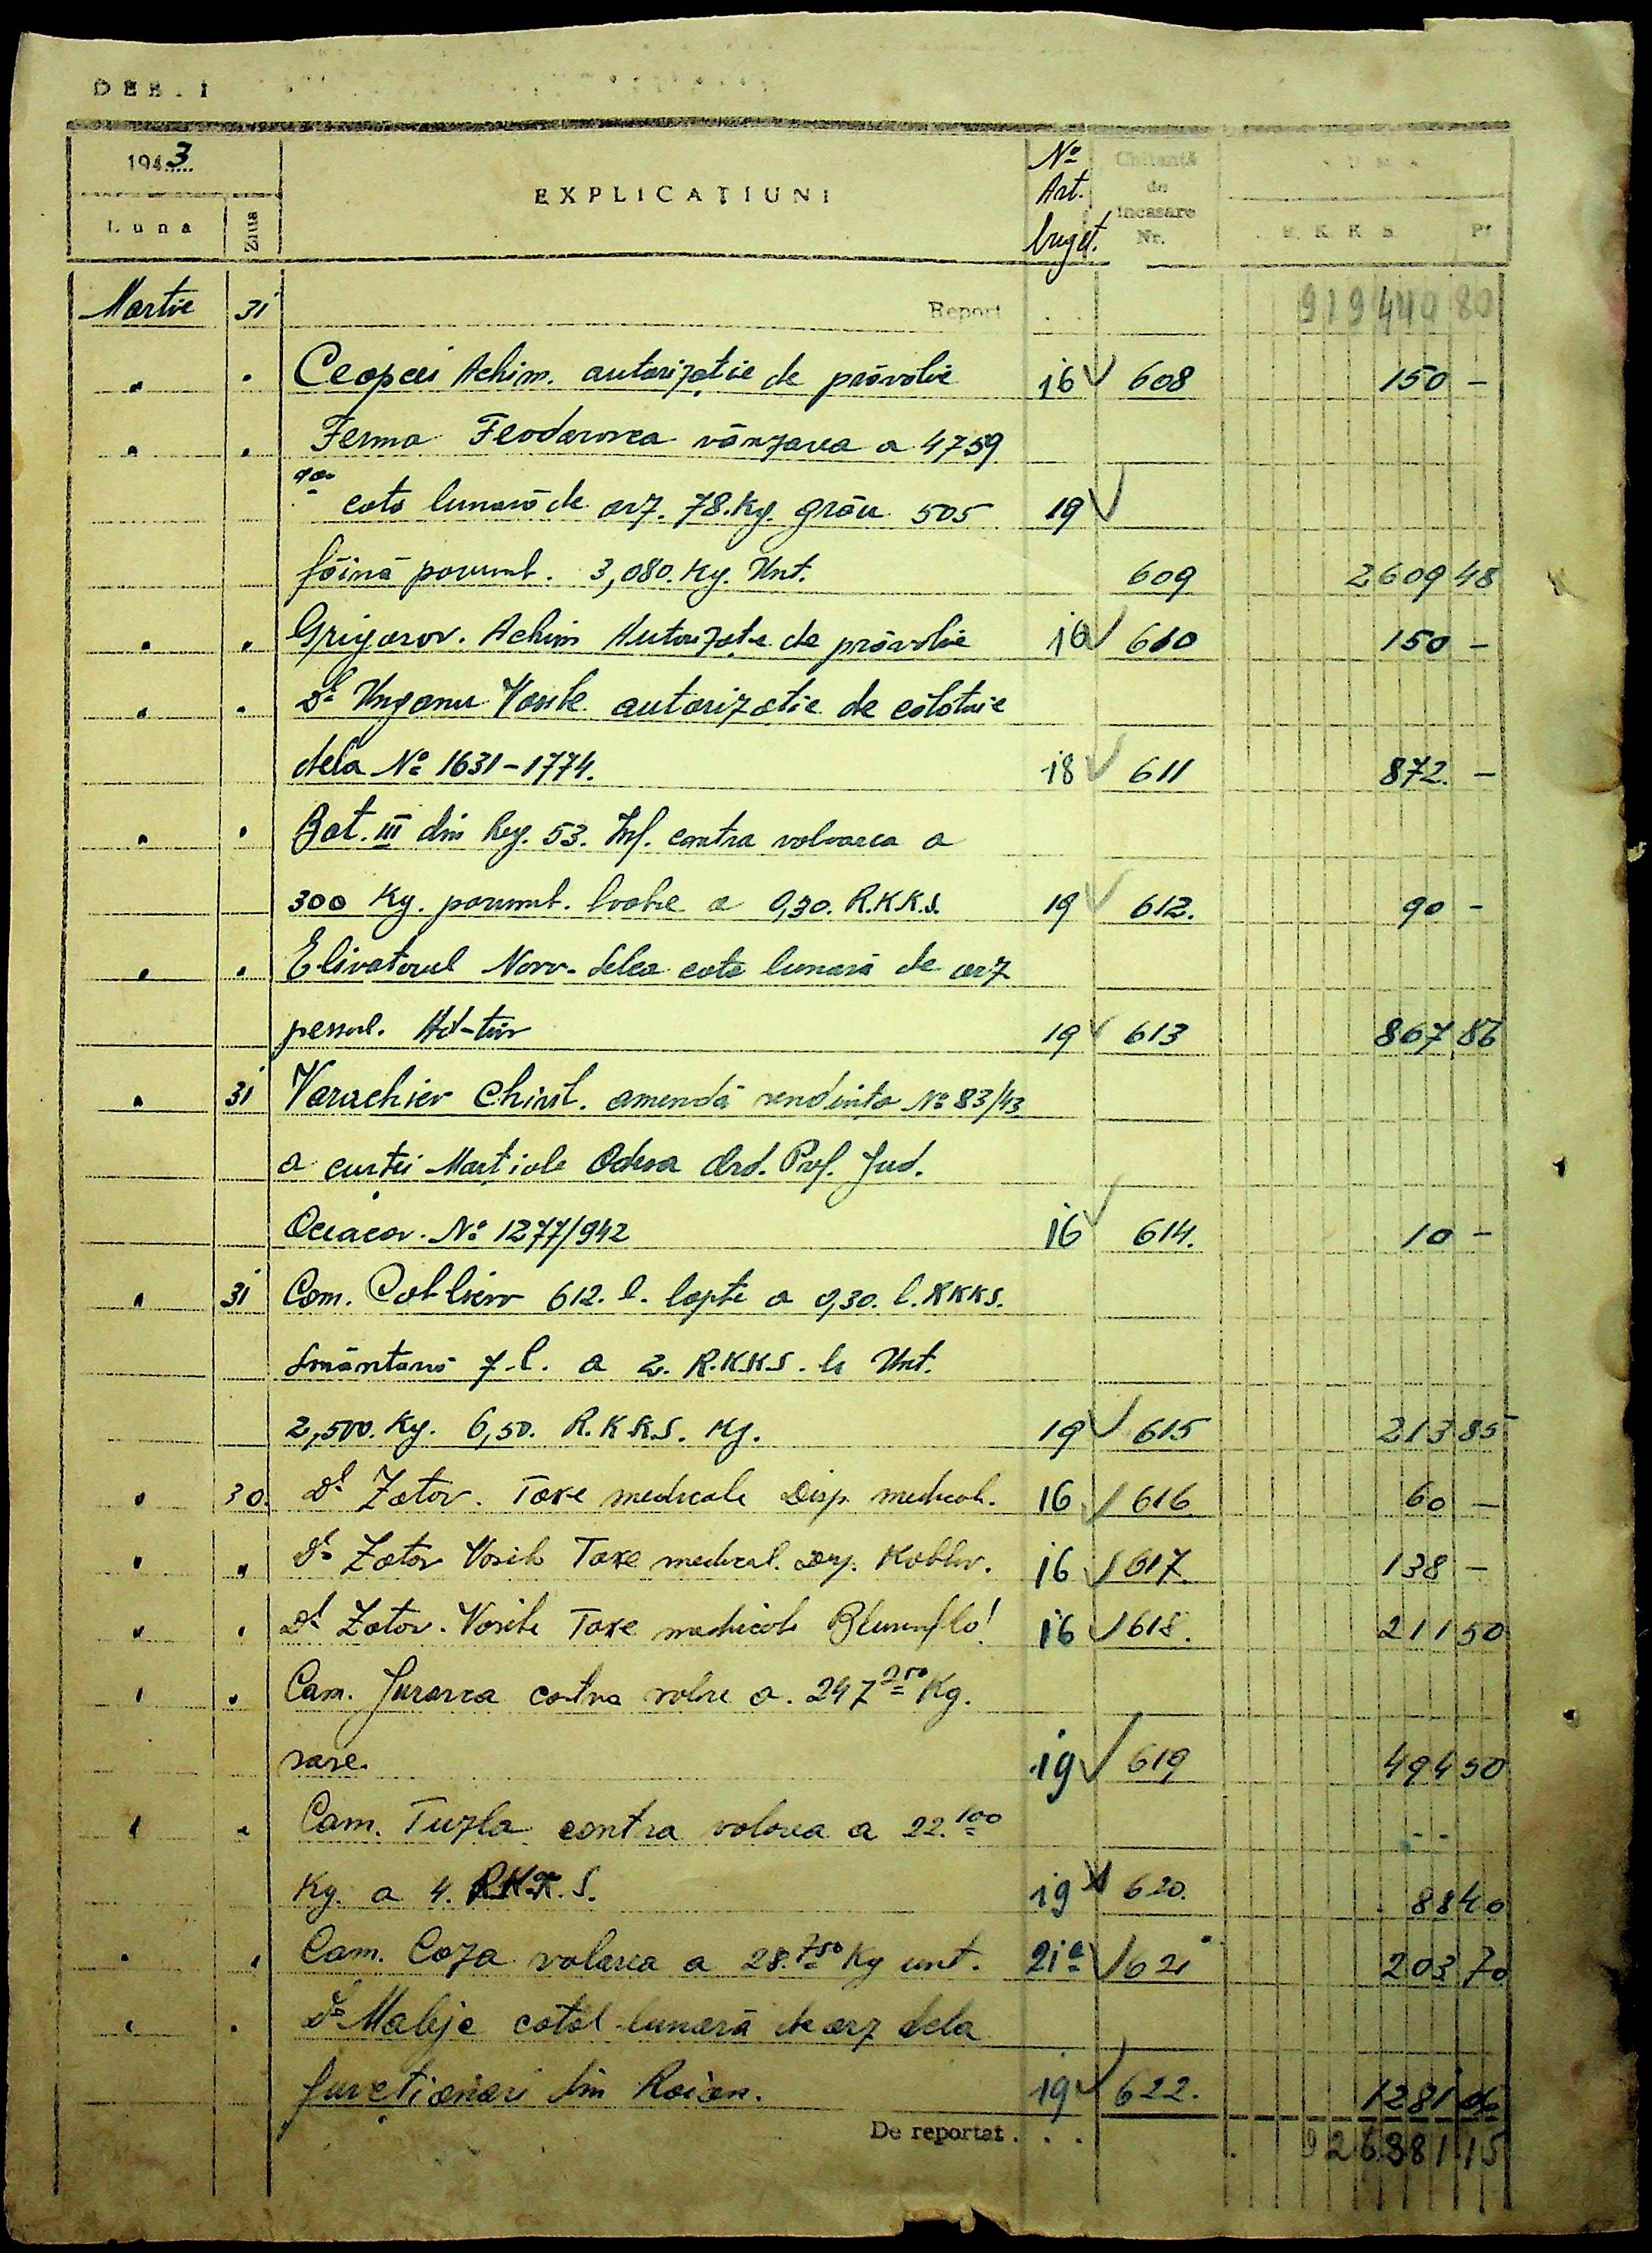 DEB I
1943
Luna Ziua EXPLICAŢIUNI No Art. buget. Chitanţă de încasare Nr. SUMA R. K. K. S. Pf
Martie 31 Report 919440 80
" " autorizaţie de prăvălie 16 608 150 -
" " Ferma vânzarea a 4759
cota lunară de arz. 78. Kg. grâu 505 19
făină porumb. 3,080. Kg. Unt. 609 2609 48
" " Grigorov. Achim Autorizaţie de prăvălie 16 610 150 -
" " Dl Unganu Vasile autorizaţie de călătorie
dela No 1631-1774. 18 611 872. -
" " Bat. III din Reg. 53. Inf. contra valoarea a
300 Kg. porumb. boabe a 0,30. R.K.K.S. 19 612. 90 -
" " Elivatorul cota lunară de arz
19 613 867,86
" 31 amendă No 83/43
a curţei Marţiale Odesa Ord. Pref. Jud.
Oceacov. No 1277/942 16 614. 10 -
" 31 Com. 612. l. lapte a 0,30. l. RKKS.
Smântână 7 l. a 2. R.KKS. Unt.
2,500. Kg. 6,50. R.K.K.S. Kg. 19 615 213 85
" 30. Dl Zotov. Taxe medicale Disp. medical. 16 616 60 -
" " Dl Zotov Vasile Taxe medical. 16 617. 138 -
" " Dl Zotov. Vasile Taxe medicale 16 618. 211 50
" " Com. contra a. 247 250 Kg.
sare. 19 619 494 50
" " Com. Tuzla contra valorea a 22.100
Kg. a 4. R.K.K.S. 19 620. 88 40
" " Com. Coza valorea a 28.750 Kg unt. 21a 621 203 70
" " lunară de arz dela
functionari din Roian. 19 622. 1281 06
De reportat . . . 926881 15